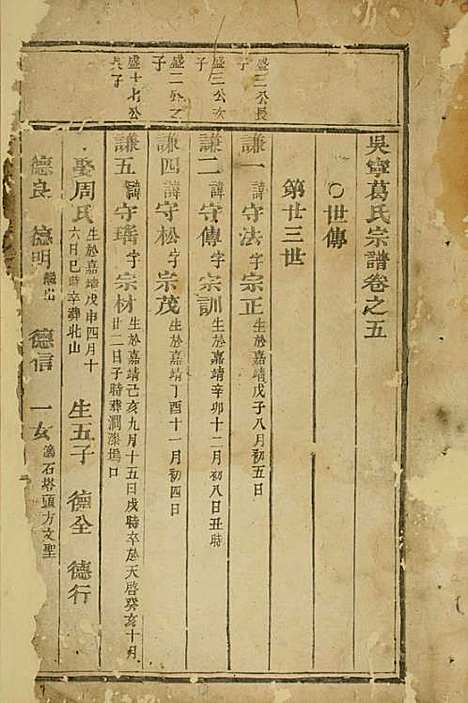 吳寧葛氏宗譜卷之五
○世傳
第廿三世
盛三公長子
謙一 諱守法字宗正 生於嘉靖戊子八月初五日
盛三公次子
謙二 諱守傳字宗訓 生於嘉靖辛卯十二月初八日丑時
盛二公之子
謙四 諱守松字宗茂 生於嘉靖丁酉十一月初四日
盛十七公長子
謙五 諱守瑀字宗材 生於嘉靖己亥九月十五日戌時卒於天啓癸亥十月廿二日子時葬澗漆塢口
娶周氏 生於嘉靖戊申四月十六日巳時卒葬北山 生五子 德全 德行
德良 德明 繼出 德信 一女 適石塔頭方文聖